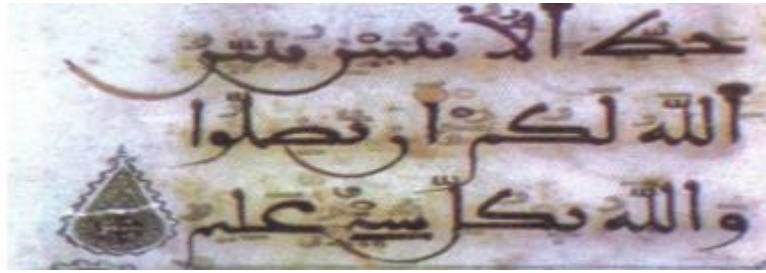 حظ الأنثيين يبين
الله لكم أن تضلوا
والله بكل شيء عليم